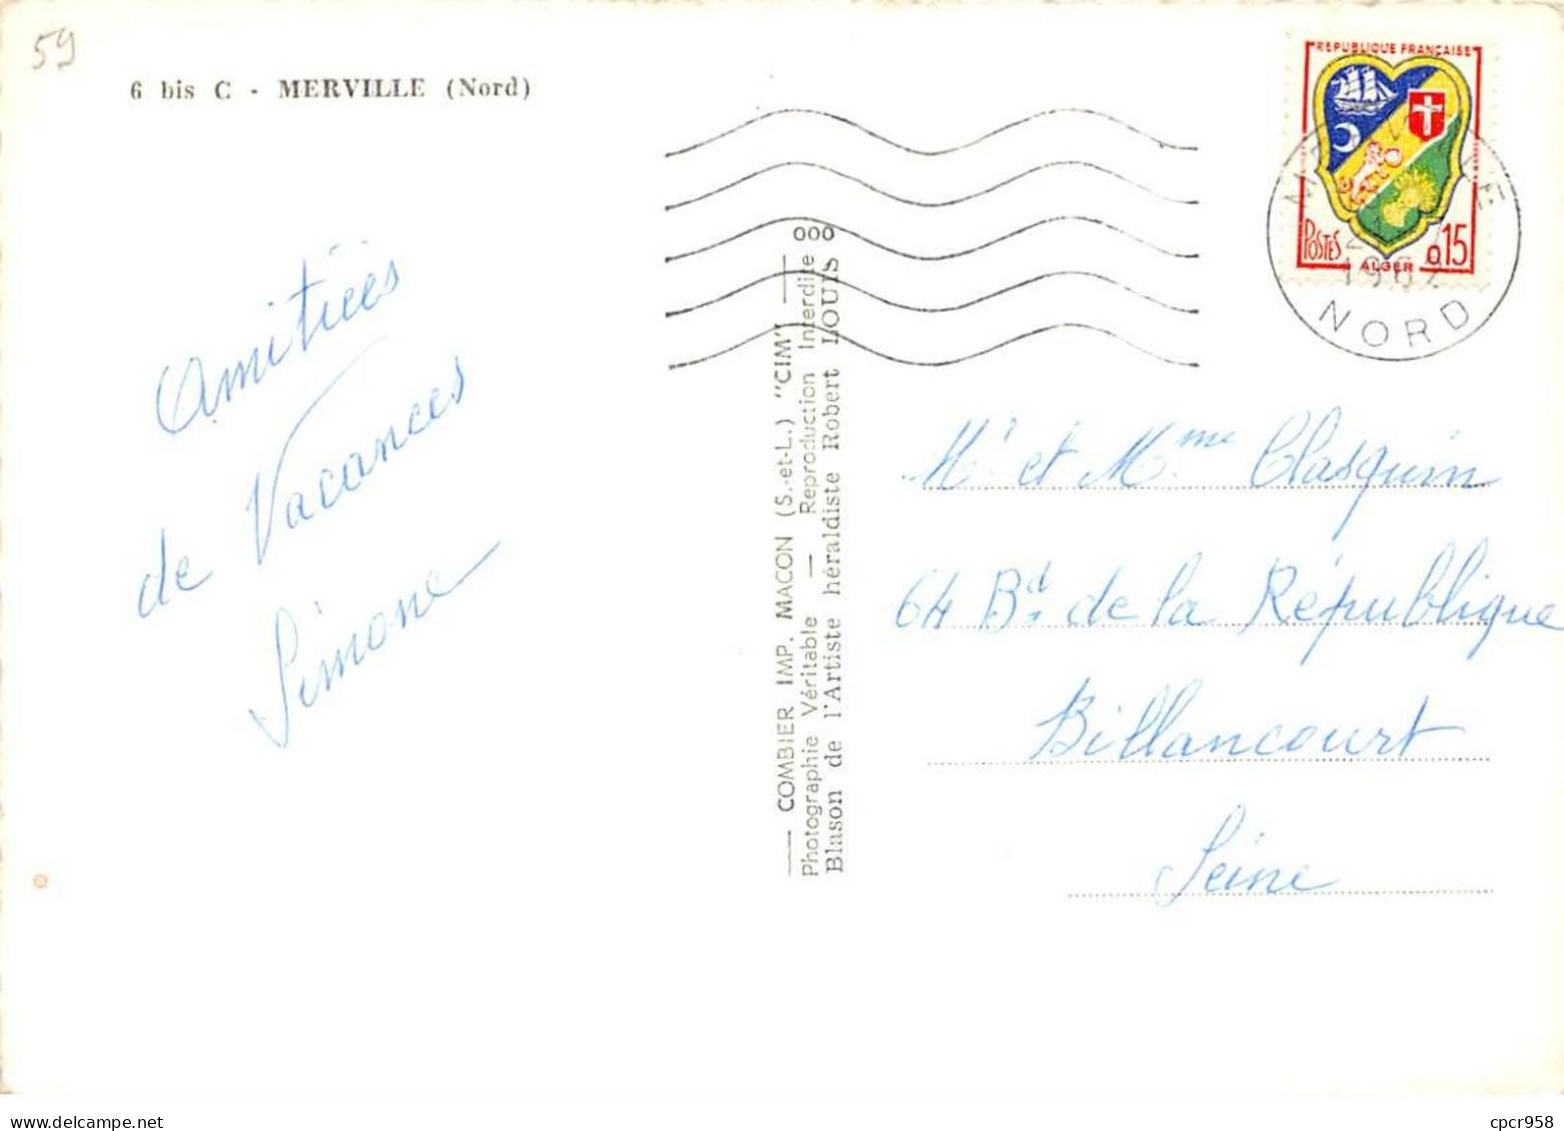 59
6 bis C - MERVILLE (Nord)
REPUBLIQUE FRANÇAISE
POSTES
ALGER
0,15
1962
NORD
Amitiées
de Vacances
Simone
COMBIER IMP. MACON (S.-et-L.) "CIM"
Photographie Véritable — Reproduction Interdite
Blason de l'Artiste héraldiste Robert LOUIS
000
Mr et Mme Clasquin
64 Bd de la République
Billancourt
Seine
cpcr958